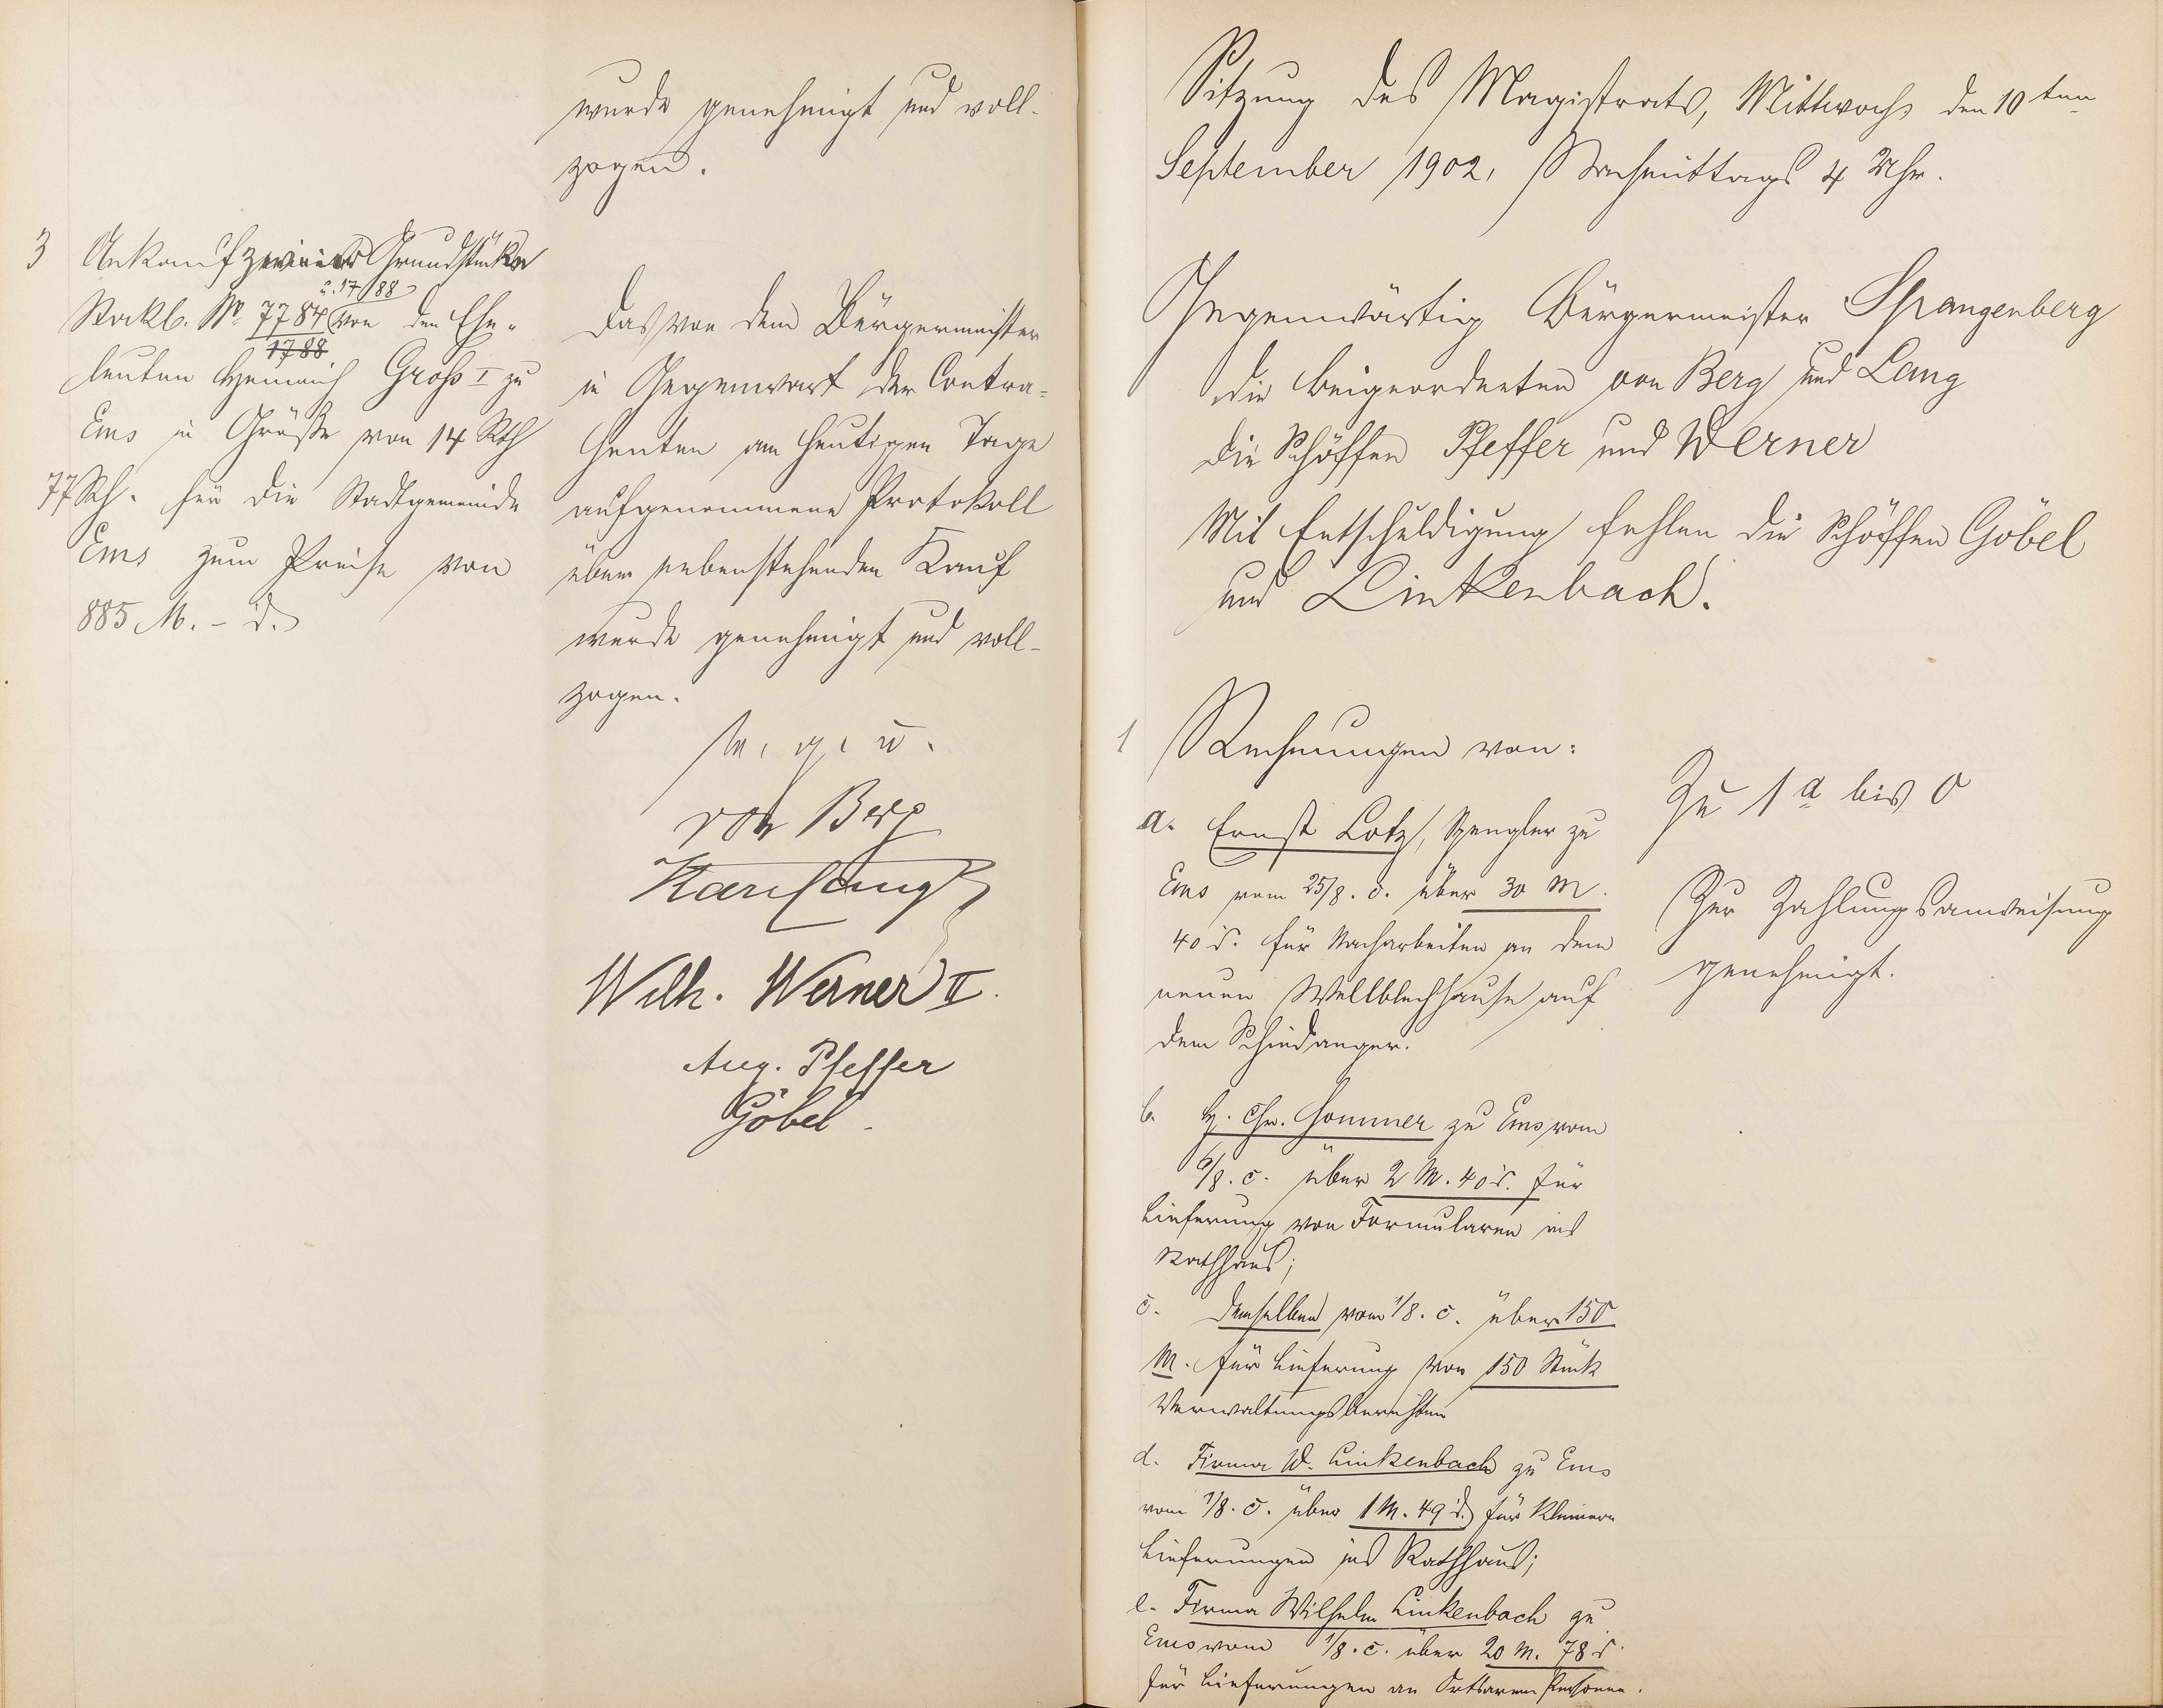 wurde genehmigt und voll-
zogen.
3 Ankauf zweier Grundstücke
u. 1788
Stockb. № 7784 von den Ehe-
1788
leuten Heinrich Groß I zu
Ems in Größe von 14 Rth
77 Sch. für die Stadtgemeinde
Ems zum Preise von
885 M. – d.
Das von dem Bürgermeister
in Gegenwart der Contra-
henten am heutigen Tage
aufgenommene Protokoll
über nebenstehenden Kauf
wurde genehmigt und voll-
zogen.
v. g. u.
von Berg
Karl Lang
Wilh. Werner II.
Aug. Pfeffer
Göbel
Sitzung des Magistrats, Mittwoch den 10ten
September 1902, Nachmittags 4 Uhr.
Gegenwärtig Bürgermeister Spangenberg
die Beigeordneten von Berg und Lang
die Schöffen Pfeffer und Werner
Mit Entschuldigung fehlen die Schöffen Göbel
und Linkenbach.
1 Rechnungen von:
a. Ernst Lotz, Spengler zu
Ems vom 25/8. c. über 30 M.
40 d. für Nacharbeiten an dem
neuen Wellblechhause auf
dem Schindanger.
Zu 1 a bis o
Zur Zahlungsanweisung
genehmigt.
b. H. Chr. Sommer zu Ems vom
6/8. c. über 2 M. 40 d. für
Lieferung von Formularen ins
Rathhaus;
c. demselben vom 1/8. c. über 150
M. für Lieferung von 150 Stück
Verwaltungsberichten
d. Firma W. Linkenbach zu Ems
vom 1/8. c. über 1 M. 49 d. für kleinere
Lieferungen ins Rathhaus;
e. Firma Wilhelm Linkenbach zu
Ems vom 1/8. c. über 20 M. 78 d.
für Lieferungen an Ortsarme Personen.